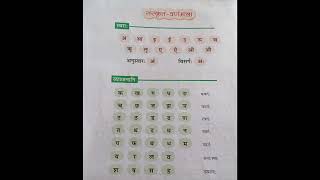 संस्कृत-वर्णमाला
स्वराः
अ आ इ ई उ ऊ ऋ
ॠ लृ ए ऐ ओ औ
अनुस्वारः अं विसर्गः अः
व्यञ्जनानि
क ख ग घ ङ कवर्ग
च छ ज झ ञ चवर्ग
ट ठ ड ढ ण टवर्ग
त थ द ध न तवर्ग
प फ ब भ म पवर्ग
य र ल व अन्तःस्थ
श ष स ह ऊष्माणः